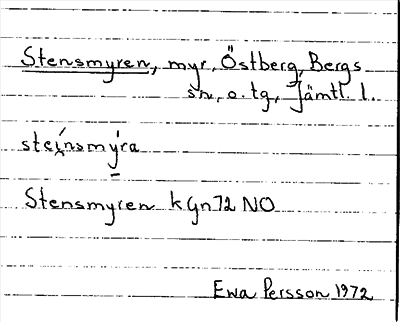 Stensmyren, myr, Östberg, Bergs
sn, o. tg, Jämtl. l.
steinsmýra
Stensmyren k Gn72 NO
Ewa Persson 1972